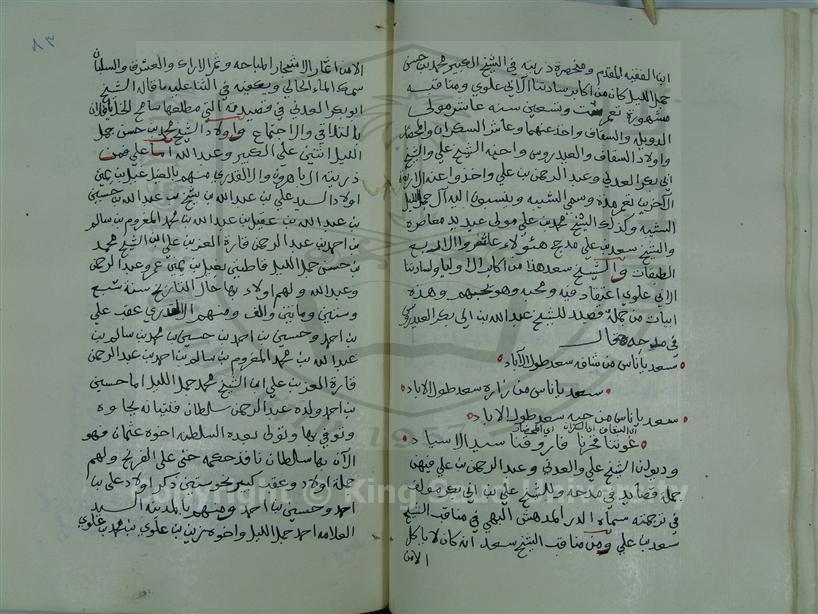 ابنا الفقيه المقدم ومنحصرة ذريته في الشيخ الكبير محمد بن حسن
جمل الليل كان من اكابر سادتنا آل ابي علوي ومناقبه
مشهورة تعمر وتسعين سنه عاش مولى
الدويله والسقاف واخذ عنهما وعاش السكران والمحضار
واولاد السقاف والعيدروس واخيه الشيخ علي والشيخ
ابي بكر العدني وعبد الرحمن بن علي واخذوا عنه
وسمي الشيبه وينسبون اليه آل جمل الليل
الشيبه وكذلك الشيخ محمد بن علي مولى عيديد معاصره
والشيخ سعد بن علي مدحج هئولاء عاشو
الطبقات والشيخ سعد هذا من اكابر الاوليا ولسادتنا
آل ابي علوي اعتقاد فيه ومحبه وهو وهذه
ابيات من جملة قصايد للشيخ عبد الله بن ابي بكر العيدروس
في مدحه قال
سعد يا ناس من شافه سعد طول الآباد
سعد يا ناس من زاره سعد طول الاباد
سعد يا ناس من حبه سعد طول الاباد
غوثنا فخرنا فاروقنا سيد الاسياد
وديوان الشيخ علي والعدني وعبد الرحمن بن علي فيهن
جملة قصايد في مدحه وللشيخ علي بن ابي بكر مولف
في ترجمته سماه الدر المدهش البهي في مناقب الشيخ
سعد بن علي ومن مناقب الشيخ سعد انه كان لا ياكل
الا من
٨٣
الا من اثمار الاشجار المباحه وثمر الاراك والعشرق والسلبان
سمك الماء الحالي ويكفيه في الثنا عليه ما قاله الشيخ
ابو بكر العدني في قصيدته التي مطلعها
بالتلاقي والاجتماع واولاد الشيخ محمد بن حسن جمل
الليل اثنين علي الكبير وعبد الله اما علي فمن
ذريته آل باهرون وآل القدري منهم
اولاد السيد علي بن عبد الله بن شيخ بن عبد الله بن حسين
بن عبد الله بن عقيل بن عبد الله بن محمد المغروم بن سالم
بن احمد بن عبد الرحمن قارة العز بن علي ابن الشيخ محمد
بن حسن جمل الليل قاطنين بعمر وعبد الرحمن
وعبد الله ولهم اولاد بها حال التاريخ سنة سبع
وستين وماتين والف ومنهم القدري عقب علي
بن احمد وحسين بن احمد بن حسين بن محمد بن سالم بن
عبد الله بن محمد المغروم بن سالم بن احمد بن عبد الرحمن
قارة العز بن علي ابن الشيخ محمد جمل الليل اما حسين
بن احمد ولده عبد الرحمن سلطان فنتيانه بجاوه
وتوفي بها وتولى بعده السلطنه اخوه عثمان وهو
الآن بها سلطان نافذ حكمه حتى على الفرنج ولهم
جملة اولاد وعقب كثير بحو ستين ذكر اولاد علي بن
احمد وحسين بن احمد ومنهم بالمدينه السيد
العلامه احمد جمل الليل واخوه زين بن علوي بن محمد بن علوي
Copyright © King Saud University
1957